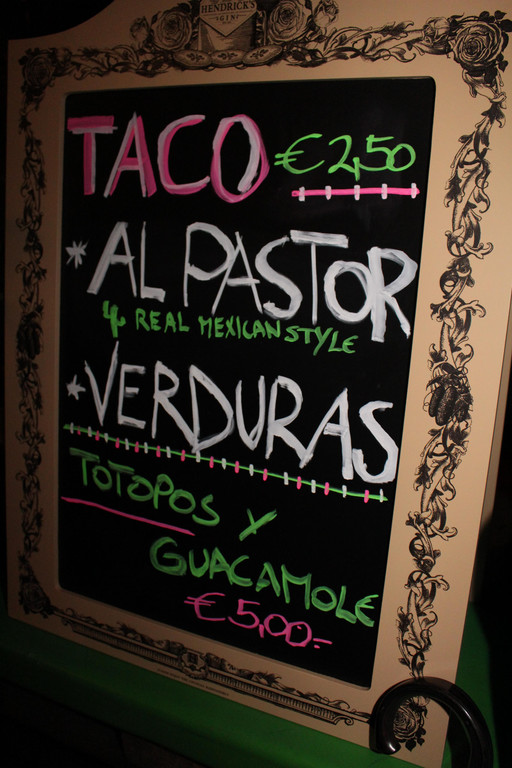 HENDRICK'S
GIN
TACO €2,50
* AL PASTOR
REAL MEXICAN STYLE
* VERDURAS
TOTOPOS Y
GUACAMOLE
€5,00.-